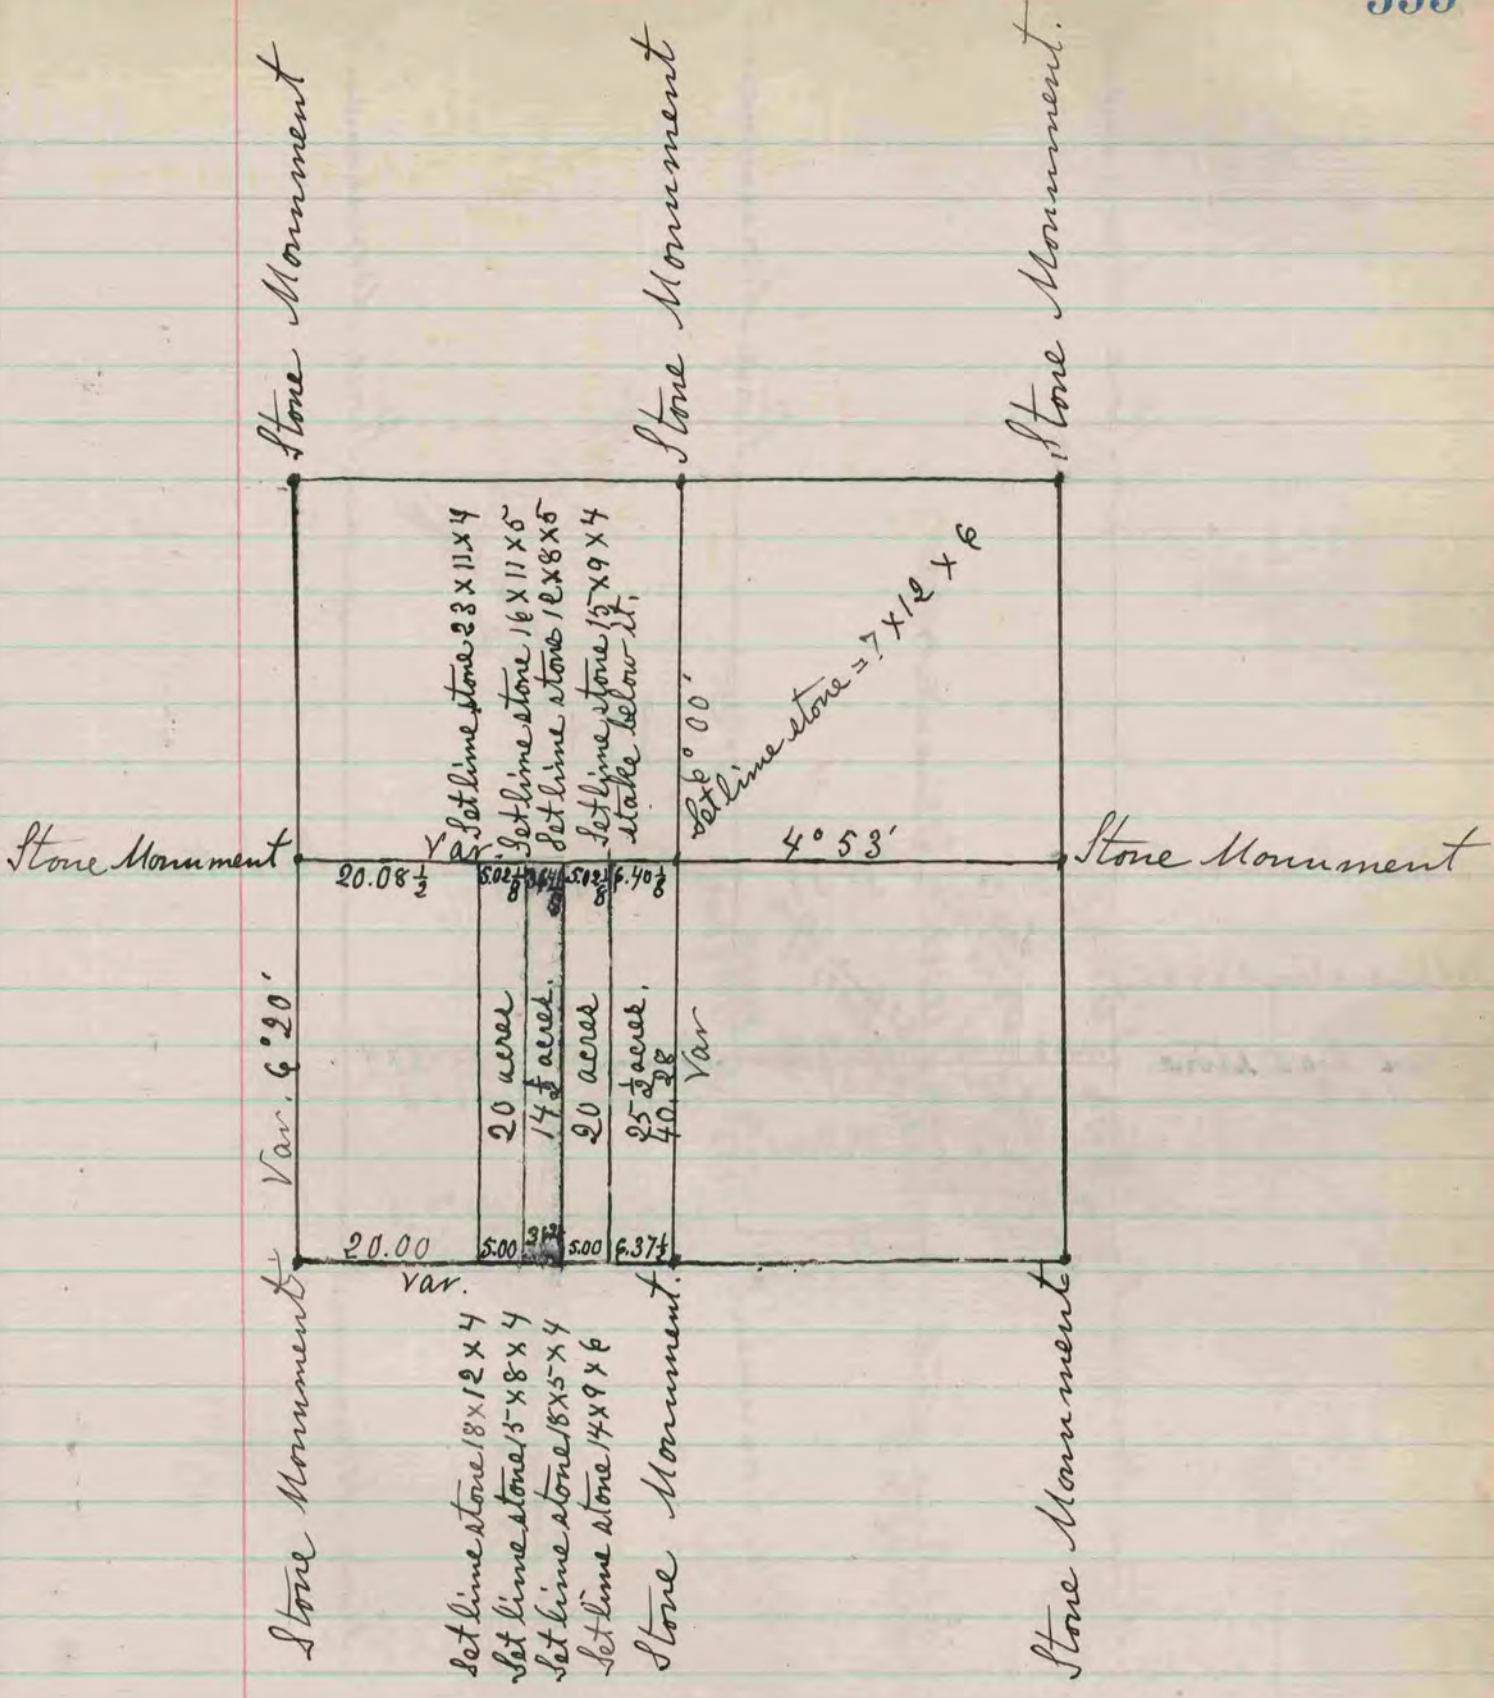 Stone Monument
Stone Monument
Stone Monument.
Set lime stone 23 X 11 X 4
Set lime stone 16 X 11 X 5
Set lime stone 12 X 8 X 5
Set lime stone 15 X 9 X 4
stake below it.
6° 00'
Set lime stone = 7 X 12 X 6
Stone Monument
Var.
4° 53'
Stone Monument
20.08 1/2
5.02 1/8
5.02 1/8
6.40 1/8
Var. 6° 20'
20 acres
14 1/2 acres.
20 acres
25 1/2 acres.
40.28
Var
20.00
5.00
5.00
6.37 1/2
Var.
Stone Monument
Set lime stone 18 X 12 X 4
Set lime stone 15 X 8 X 4
Set lime stone 18 X 5 X 4
Set lime stone 14 X 9 X 6
Stone Monument.
Stone Monument